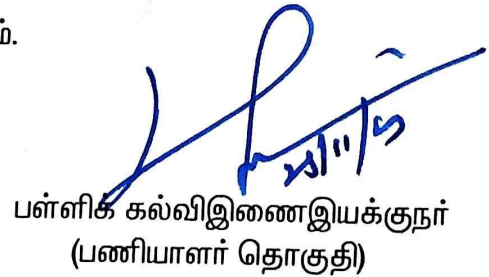 ம்.
பள்ளிக் கல்விஇணைஇயக்குநர்
(பணியாளர் தொகுதி)